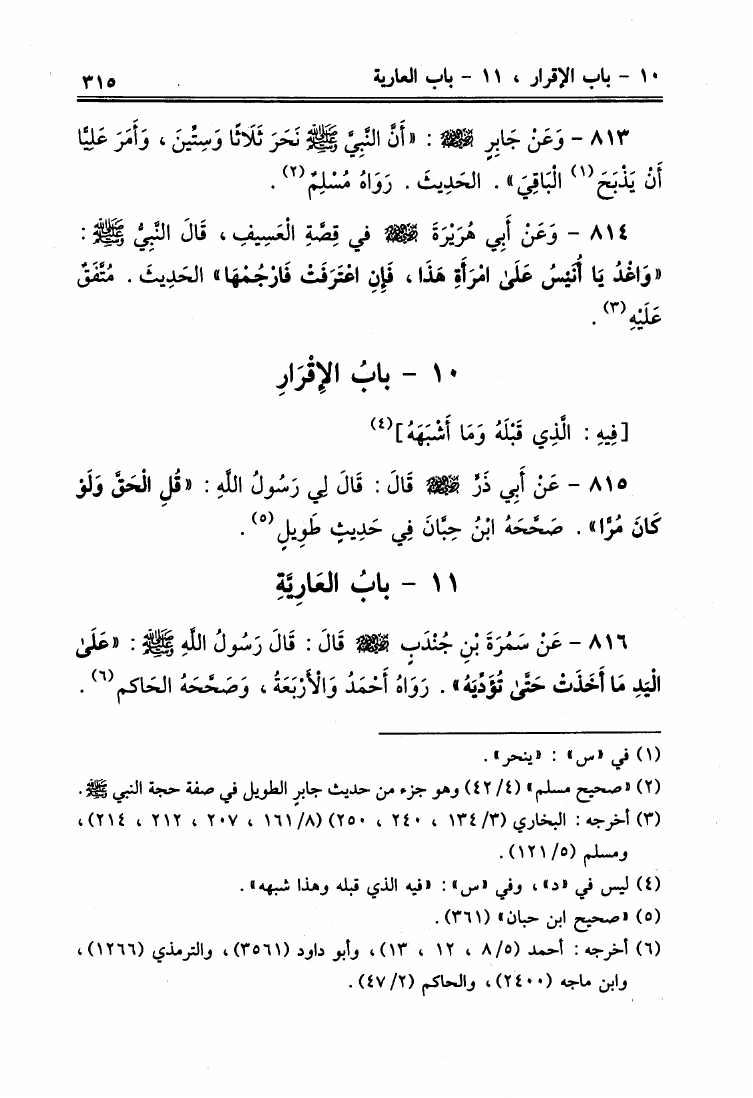 ١٠ - باب الإقرار ، ١١ - باب العارية ٣١٥
٨١٣ - وَعَنْ جَابِرٍ رضي الله عنه : «أَنَّ النَّبِيَّ ﷺ نَحَرَ ثَلَاثًا وَسِتِّينَ ، وَأَمَرَ عَلِيًّا
أَنْ يَذْبَحَ(١) الْبَاقِيَ» . الحَدِيثَ . رَوَاهُ مُسْلِمٌ(٢) .
٨١٤ - وَعَنْ أَبِي هُرَيْرَةَ رضي الله عنه في قِصَّةِ الْعَسِيفِ ، قَالَ النَّبِيُّ ﷺ :
«وَاغْدُ يَا أُنَيْسُ عَلَىٰ امْرَأَةِ هَذَا ، فَإِنِ اعْتَرَفَتْ فَارْجُمْهَا» الحَدِيثَ . مُتَّفَقٌ
عَلَيْهِ(٣) .
١٠ - بابُ الإِقْرَارِ
[فِيهِ : الَّذِي قَبْلَهُ وَمَا أَشْبَهَهُ](٤)
٨١٥ - عَنْ أَبِي ذَرٍّ رضي الله عنه قَالَ : قَالَ لِي رَسُولُ اللَّهِ : «قُلِ الْحَقَّ وَلَوْ
كَانَ مُرًّا» . صَحَّحَهُ ابْنُ حِبَّانَ فِي حَدِيثٍ طَوِيلٍ(٥) .
١١ - بابُ العَارِيَّةِ
٨١٦ - عَنْ سَمُرَةَ بْنِ جُنْدَبٍ رضي الله عنه قَالَ : قَالَ رَسُولُ اللَّهِ ﷺ : «عَلَىٰ
الْيَدِ مَا أَخَذَتْ حَتَّىٰ تُؤَدِّيَهُ» . رَوَاهُ أَحْمَدُ وَالْأَرْبَعَةُ ، وَصَحَّحَهُ الحَاكم(٦) .
(١) في «س» : «ينحر» .
(٢) «صحيح مسلم» (٤/ ٤٢) وهو جزء من حديث جابرٍ الطويل في صفة حجة النبي ﷺ .
(٣) أخرجه : البخاري (٣/ ١٣٤ ، ٢٤٠ ، ٢٥٠) (٨/ ١٦١ ، ٢٠٧ ، ٢١٢ ، ٢١٤) ،
ومسلم (٥/ ١٢١) .
(٤) ليس في «د» ، وفي «س» : «فيه الذي قبله وهذا شبهه» .
(٥) «صحيح ابن حبان» (٣٦١) .
(٦) أخرجه : أحمد (٥/ ٨ ، ١٢ ، ١٣) ، وأبو داود (٣٥٦١) ، والترمذي (١٢٦٦) ،
وابن ماجه (٢٤٠٠) ، والحاكم (٢/ ٤٧) .